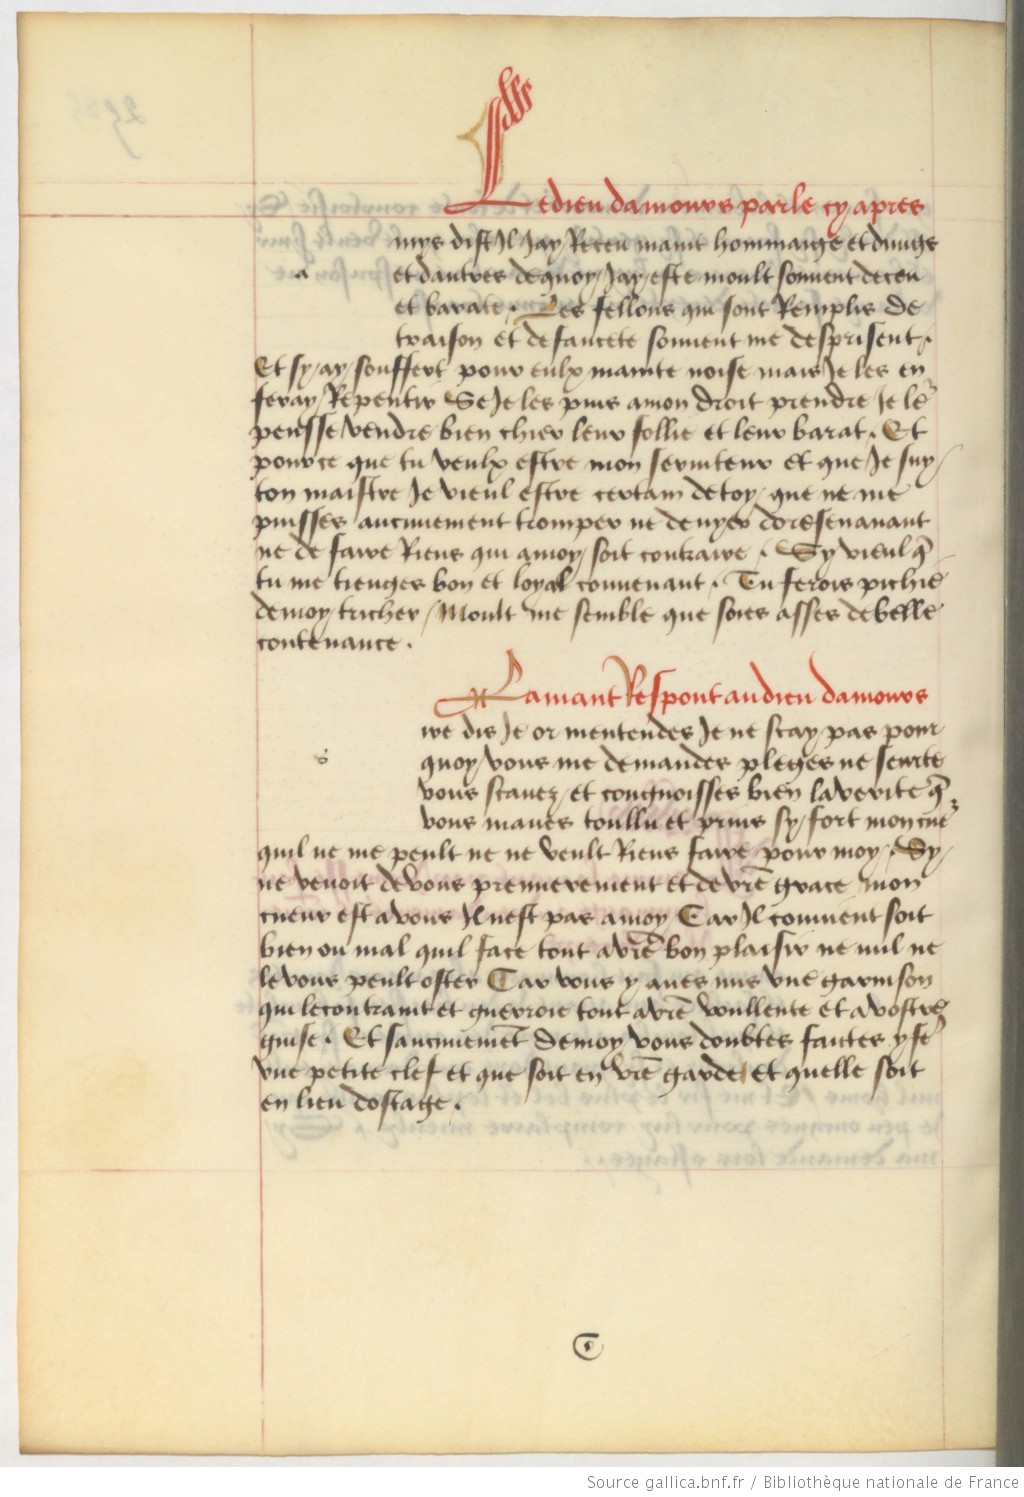 Le dieu damours parle cy apres
mys dist Il Jay Receu maint hommaige et dungs
a
et dautres de quoy Jay este moult souvent deceu
et barate. Les fellons qui sont Remplis de
traison et de faucete souvent me desprisent.
Et sy ay souffert pour eulx mainte noise mais Je les en
feray Repentir Se Je les puis a mon droit prendre Je le
pensse vendre bien chier leur follie et leur barat. Et
pource que tu veulx estre mon serviteur et que Je suy
ton maistre Je vieul estre certain de toy que ne me
puisses aucunement tromper ne denyer doresenavant
ne de faire Riens qui a moy soit contraire. Sy vieul q̃
tu me tienges bon et loyal convenant. Tu ferois pichie
de moy tricher Moult me semble que soies asses de belle
contenance.
Lamant Respont au dieu damours
ire dis Je or mentendes Je ne scay pas pour
s
quoy vous me demandes pleges ne seurte
vous scavez et congnoisses bien la verite q̃
vous maves toullu et prins sy fort mon cue᷑
quil ne me peult ne ne veult Riens faire pour moy. Sy
ne venoit de vous premierement et de vrẽ grace mon
cueur est a vous Il nest pas a moy Car Il convient soit
bien ou mal quil face tout a vrẽ bon plaisir ne nul ne
le vous peult oster Car vous y aves mis une garnison
qui le contraint et guerroie tout a vrẽ voullente et a vostre
guise. Et sancunemẽt de moy vous doubtes faites y fẽ
une petite clef et que soit en vrẽ garde et quelle soit
en lieu dostage.
Source gallica.bnf.fr / Bibliothèque nationale de France